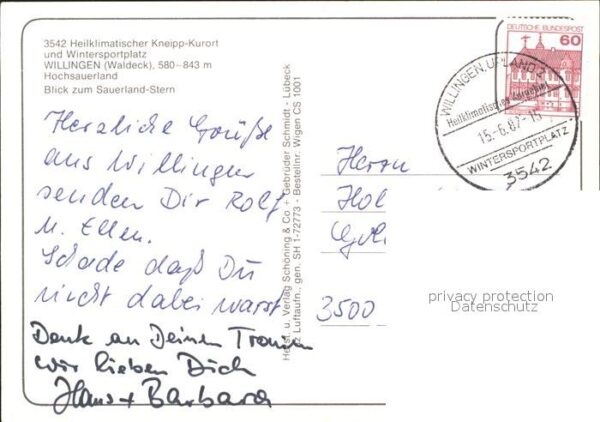 3542 Heilklimatischer Kneipp-Kurort
und Wintersportplatz
WILLINGEN (Waldeck), 580–843 m
Hochsauerland
Blick zum Sauerland-Stern
Herzliche Grüße
aus Willingen
senden Dir Rolf
u. Ellen.
Schade daß Du
nicht dabei warst
Denk an Deinen
wir lieben Dich
Hans + Barbara
Herst. u. Verlag Schöning & Co. + Gebrüder Schmidt - Lübeck
Luftaufn., gen. SH 1-72773 - Bestellnr. Wigen CS 1001
DEUTSCHE BUNDESPOST
60
WILLINGEN, UPLAND 2
Heilklimatischer Kurort
15.-6.87-15
WINTERSPORTPLATZ
3542
Herrn
Hol
3500
privacy protection
Datenschutz